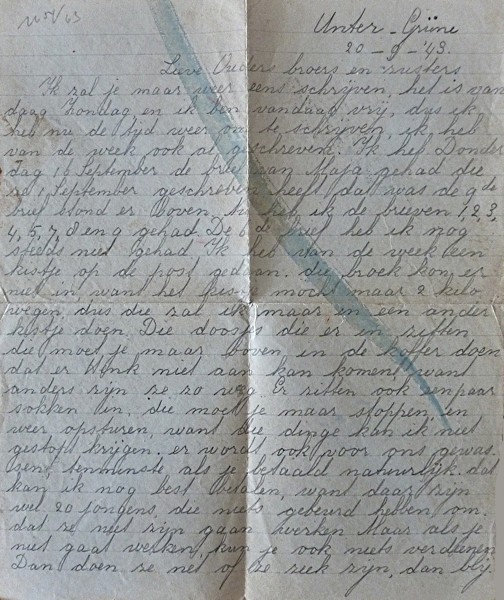 Unter-Grüne
20-9-'43.
Lieve Ouders broers en zusters
Ik zal je maar weer eens schrijven, het is van
daag Zondag en ik ben vandaag vrij, dus ik
heb nu de tyd weer om te schrijven, ik heb
van de week ook al geschreven. Ik heb Donder
dag 16 September de brief van Maja gehad die
ze September geschreven heeft dat was de 9de
brief stond er boven, nu heb ik de brieven 1, 2, 3,
4, 5, 7, 8 en 9 gehad. De 6de brief heb ik nog
steeds niet gehad. Ik heb van de week een
kistje op de post gedaan. die broek kon er
niet in, want het mocht maar 2 kilo
wegen, dus die zal ik maar in een ander
kistje doen. Die doosjes die er in zitten
die moet je maar boven in de koffer doen
dat er Henk niet aan kan komen, want
anders zijn ze zo weg. Er zitten ook een paar
sokken in, die moet je maar stoppen en
weer opsturen, want die dinge kan ik niet
gestopt krijgen. er wordt ook voor ons gewas
sen, tenminste, als je betaald natuurlijk. dat
kan ik nog best betalen, want daar zijn
wel 20 jongens, die niets gebeurd hebben om.
dat ze niet zijn gaan werken Maar als je
niet gaat werken, kun je ook niets verdienen
Dan doen ze net of ze ziek zijn, dan blij.